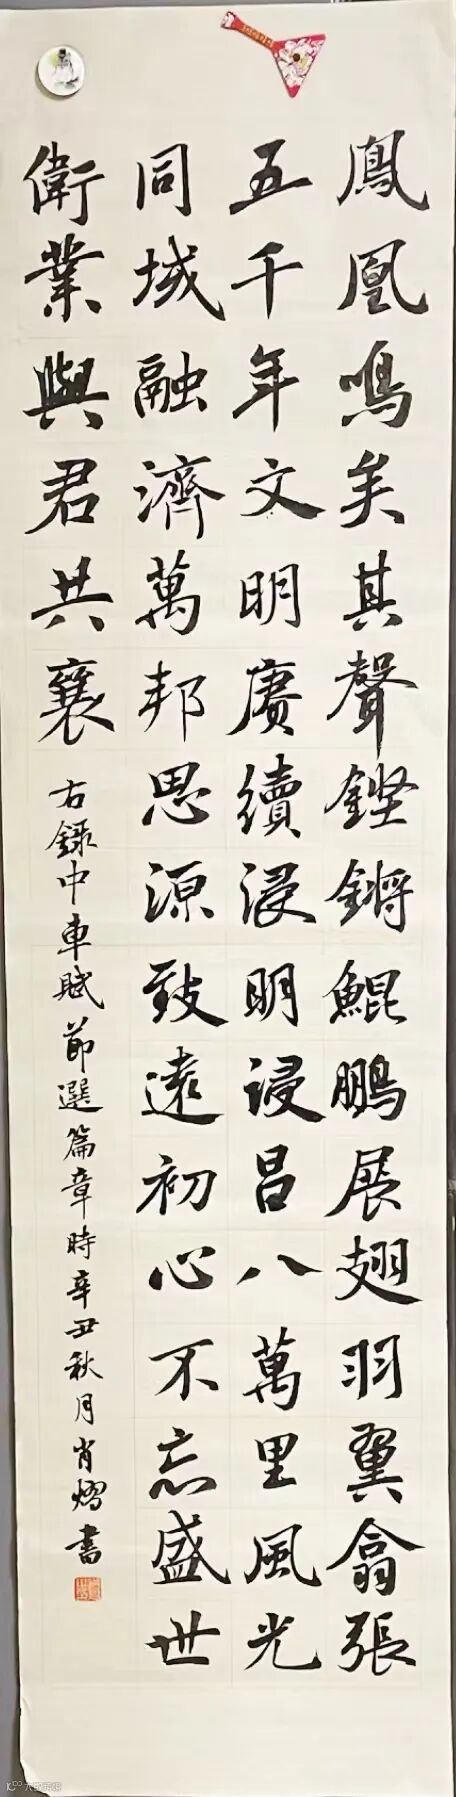 鳳凰鳴矣其聲鏗鏘鯤鵬展翅羽翼翕張
五千年文明賡續浸明浸吕八萬里風光
同域融濟萬邦思源致遠初心不忘盛世
衛業與君共襄
右録中車賦節選篇章時辛丑秋月肖熠書